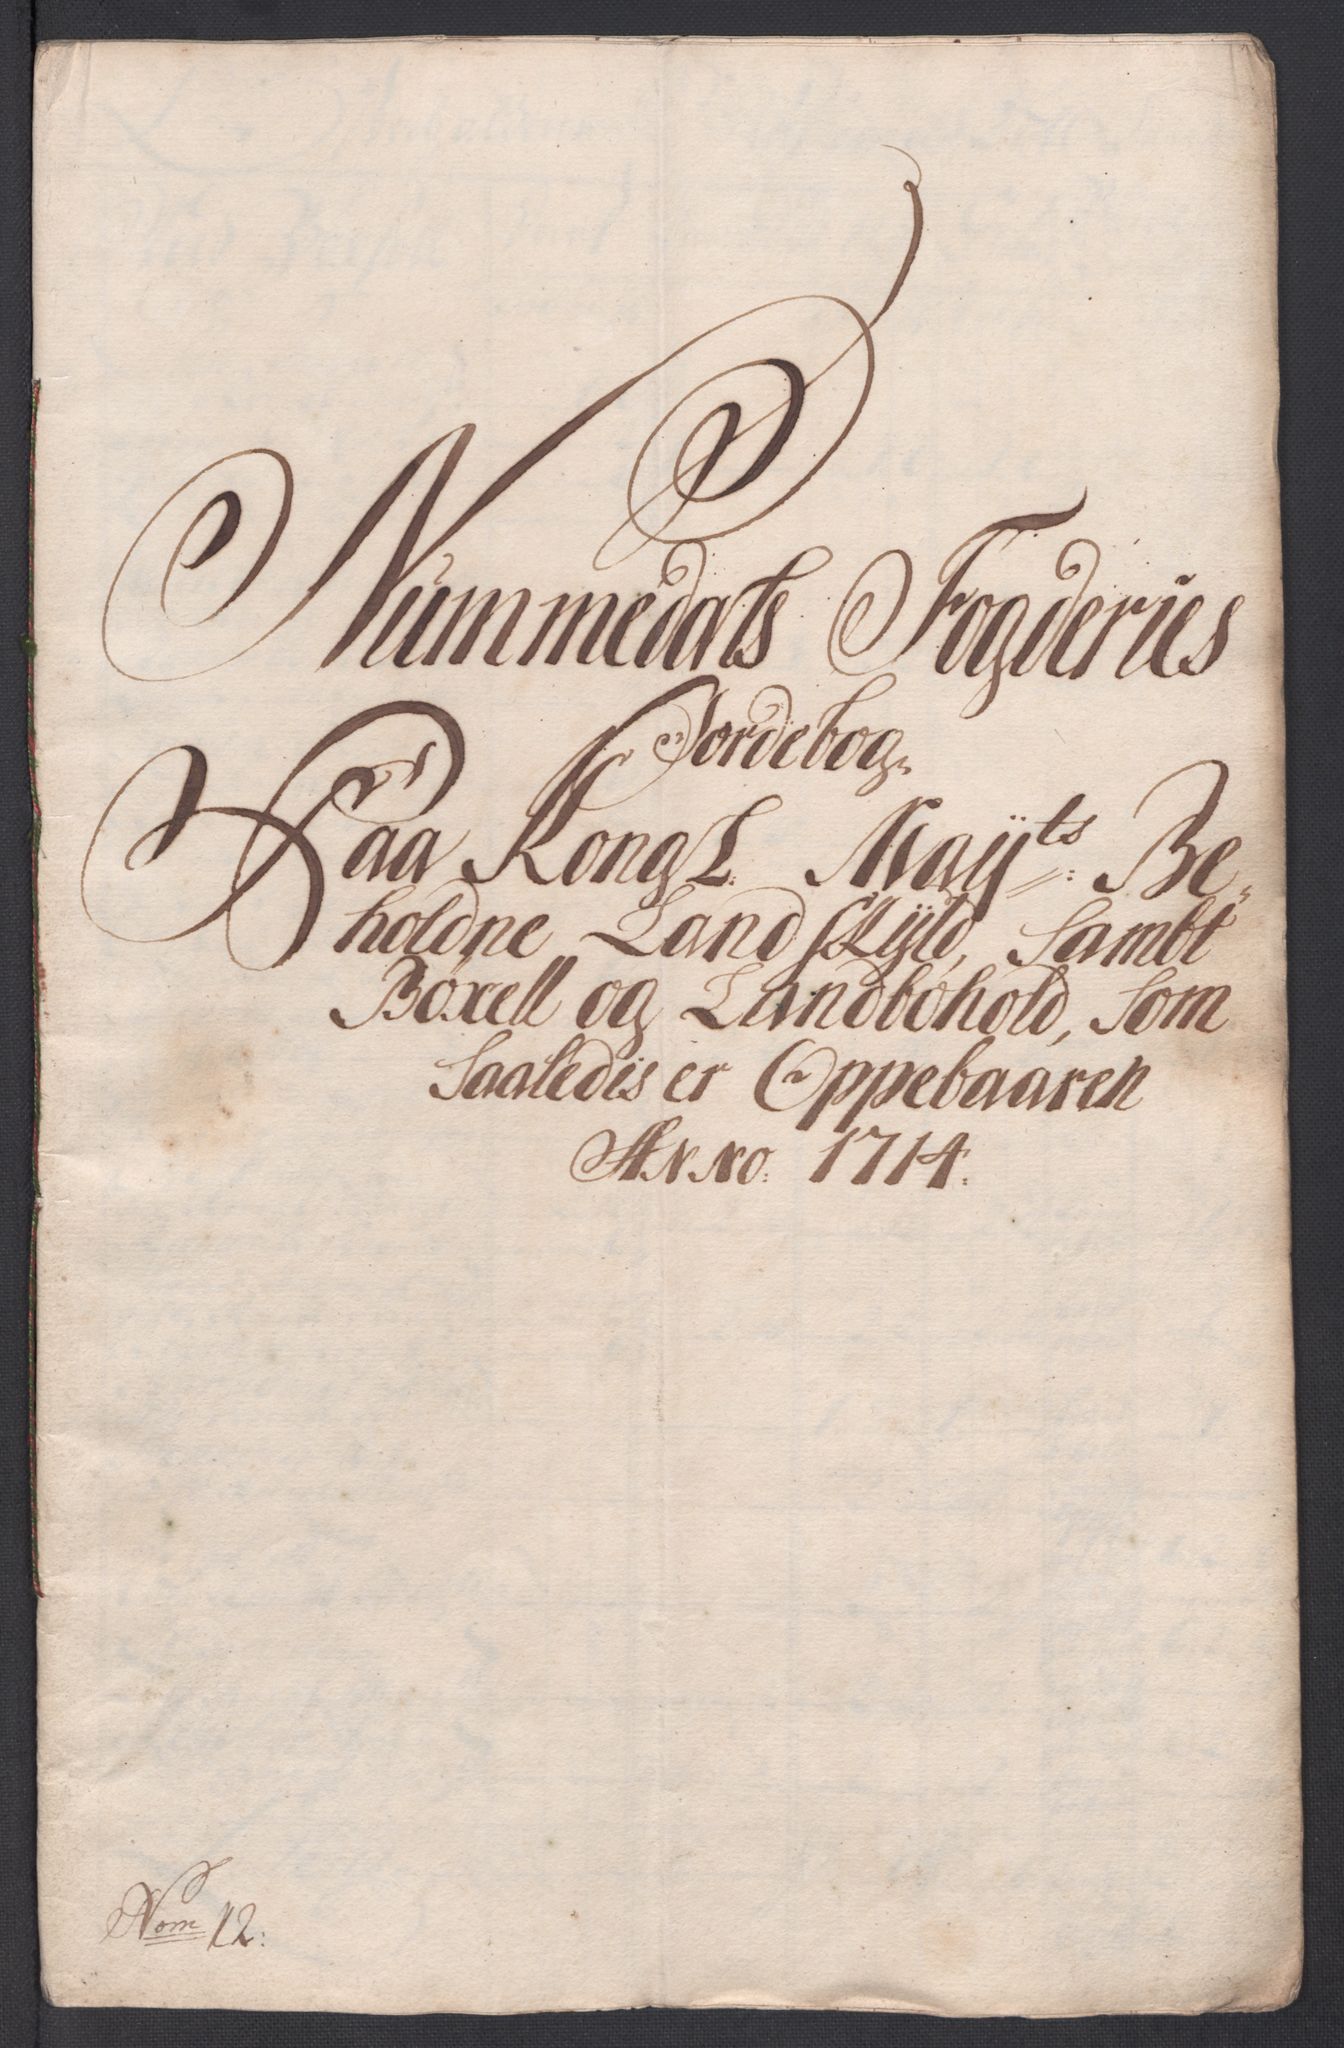 Nummedals Fogderies
Jordebog
Paa Kongl. Mayts: Be-
holdne Landskyld, Sambt
Böxell og Landbohold, Som
Saaledis er Oppebaaren
Anno. 1714.
Nom 12: